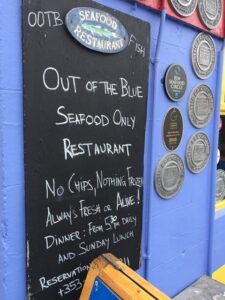 SEAFOOD
RESTAURANT
OOTB
FISH
OUT OF THE BLUE
SEAFOOD ONLY
RESTAURANT
NO CHIPS, NOTHING FROZEN
ALWAYS FRESH OR ALIVE!
DINNER: FROM 5:30 DAILY
AND SUNDAY LUNCH
RESERVATIONS
+353